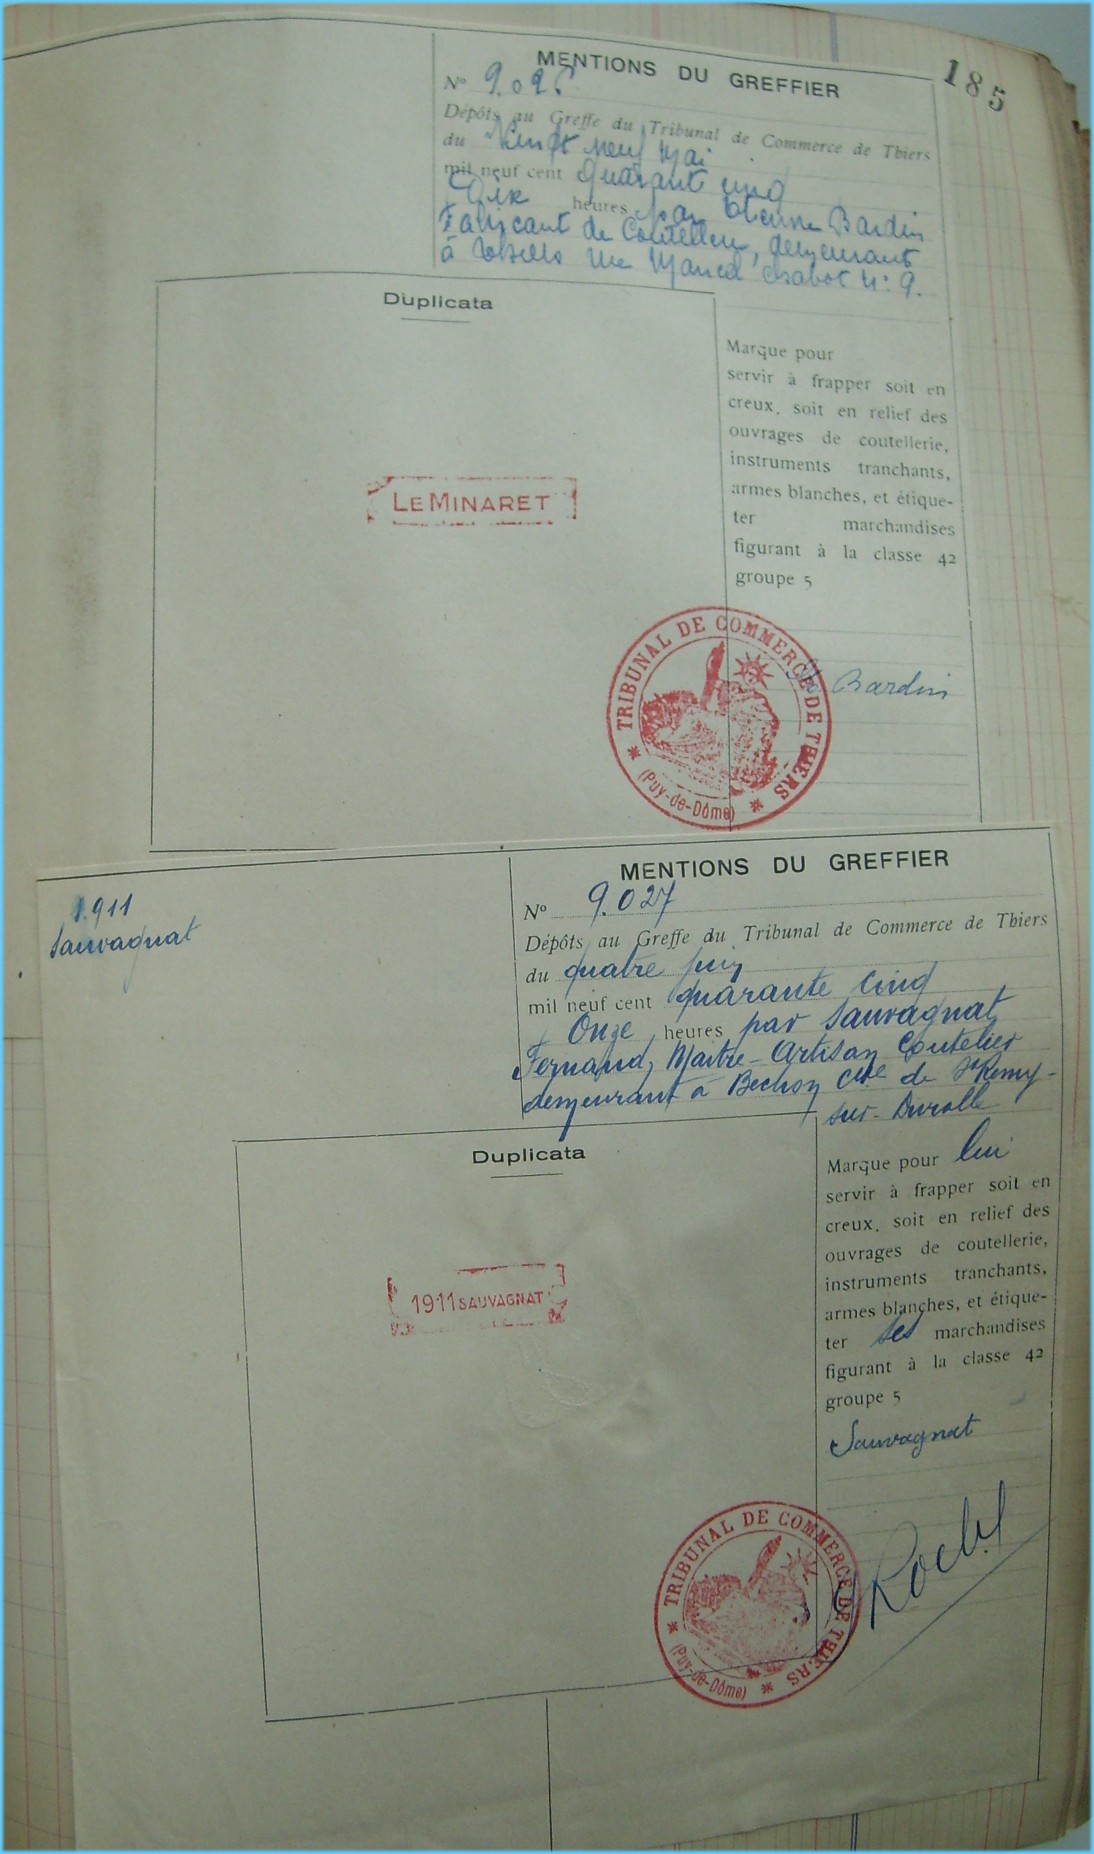 185
MENTIONS DU GREFFIER
N° 9.026
Dépôts au Greffe du Tribunal de Commerce de Thiers
du Vingt neuf Mai
mil neuf cent quarante cinq
Dix heures par Etienne Bardin
Fabricant de Coutellerie, demeurant
à rue Marcel Chabot N° 9.
Duplicata
Marque pour
servir à frapper soit en
creux, soit en relief des
ouvrages de coutellerie,
instruments tranchants,
armes blanches, et étique-
ter marchandises
figurant à la classe 42
groupe 5
LE MINARET
Bardin
TRIBUNAL DE COMMERCE DE THIERS
(Puy-de-Dôme)
1.911
Sauvagnat
MENTIONS DU GREFFIER
N° 9.027
Dépôts au Greffe du Tribunal de Commerce de Thiers
du quatre juin
mil neuf cent quarante cinq
Onze heures par Sauvagnat
Fernand, Maitre-Artisan Coutelier
demeurant à Bechon Cne de St Remy-
sur-Durolle
Duplicata
Marque pour lui
servir à frapper soit en
creux, soit en relief des
ouvrages de coutellerie,
instruments tranchants,
armes blanches, et étique-
ter ses marchandises
figurant à la classe 42
groupe 5
1911 SAUVAGNAT
Sauvagnat
TRIBUNAL DE COMMERCE DE THIERS
(Puy-de-Dôme)